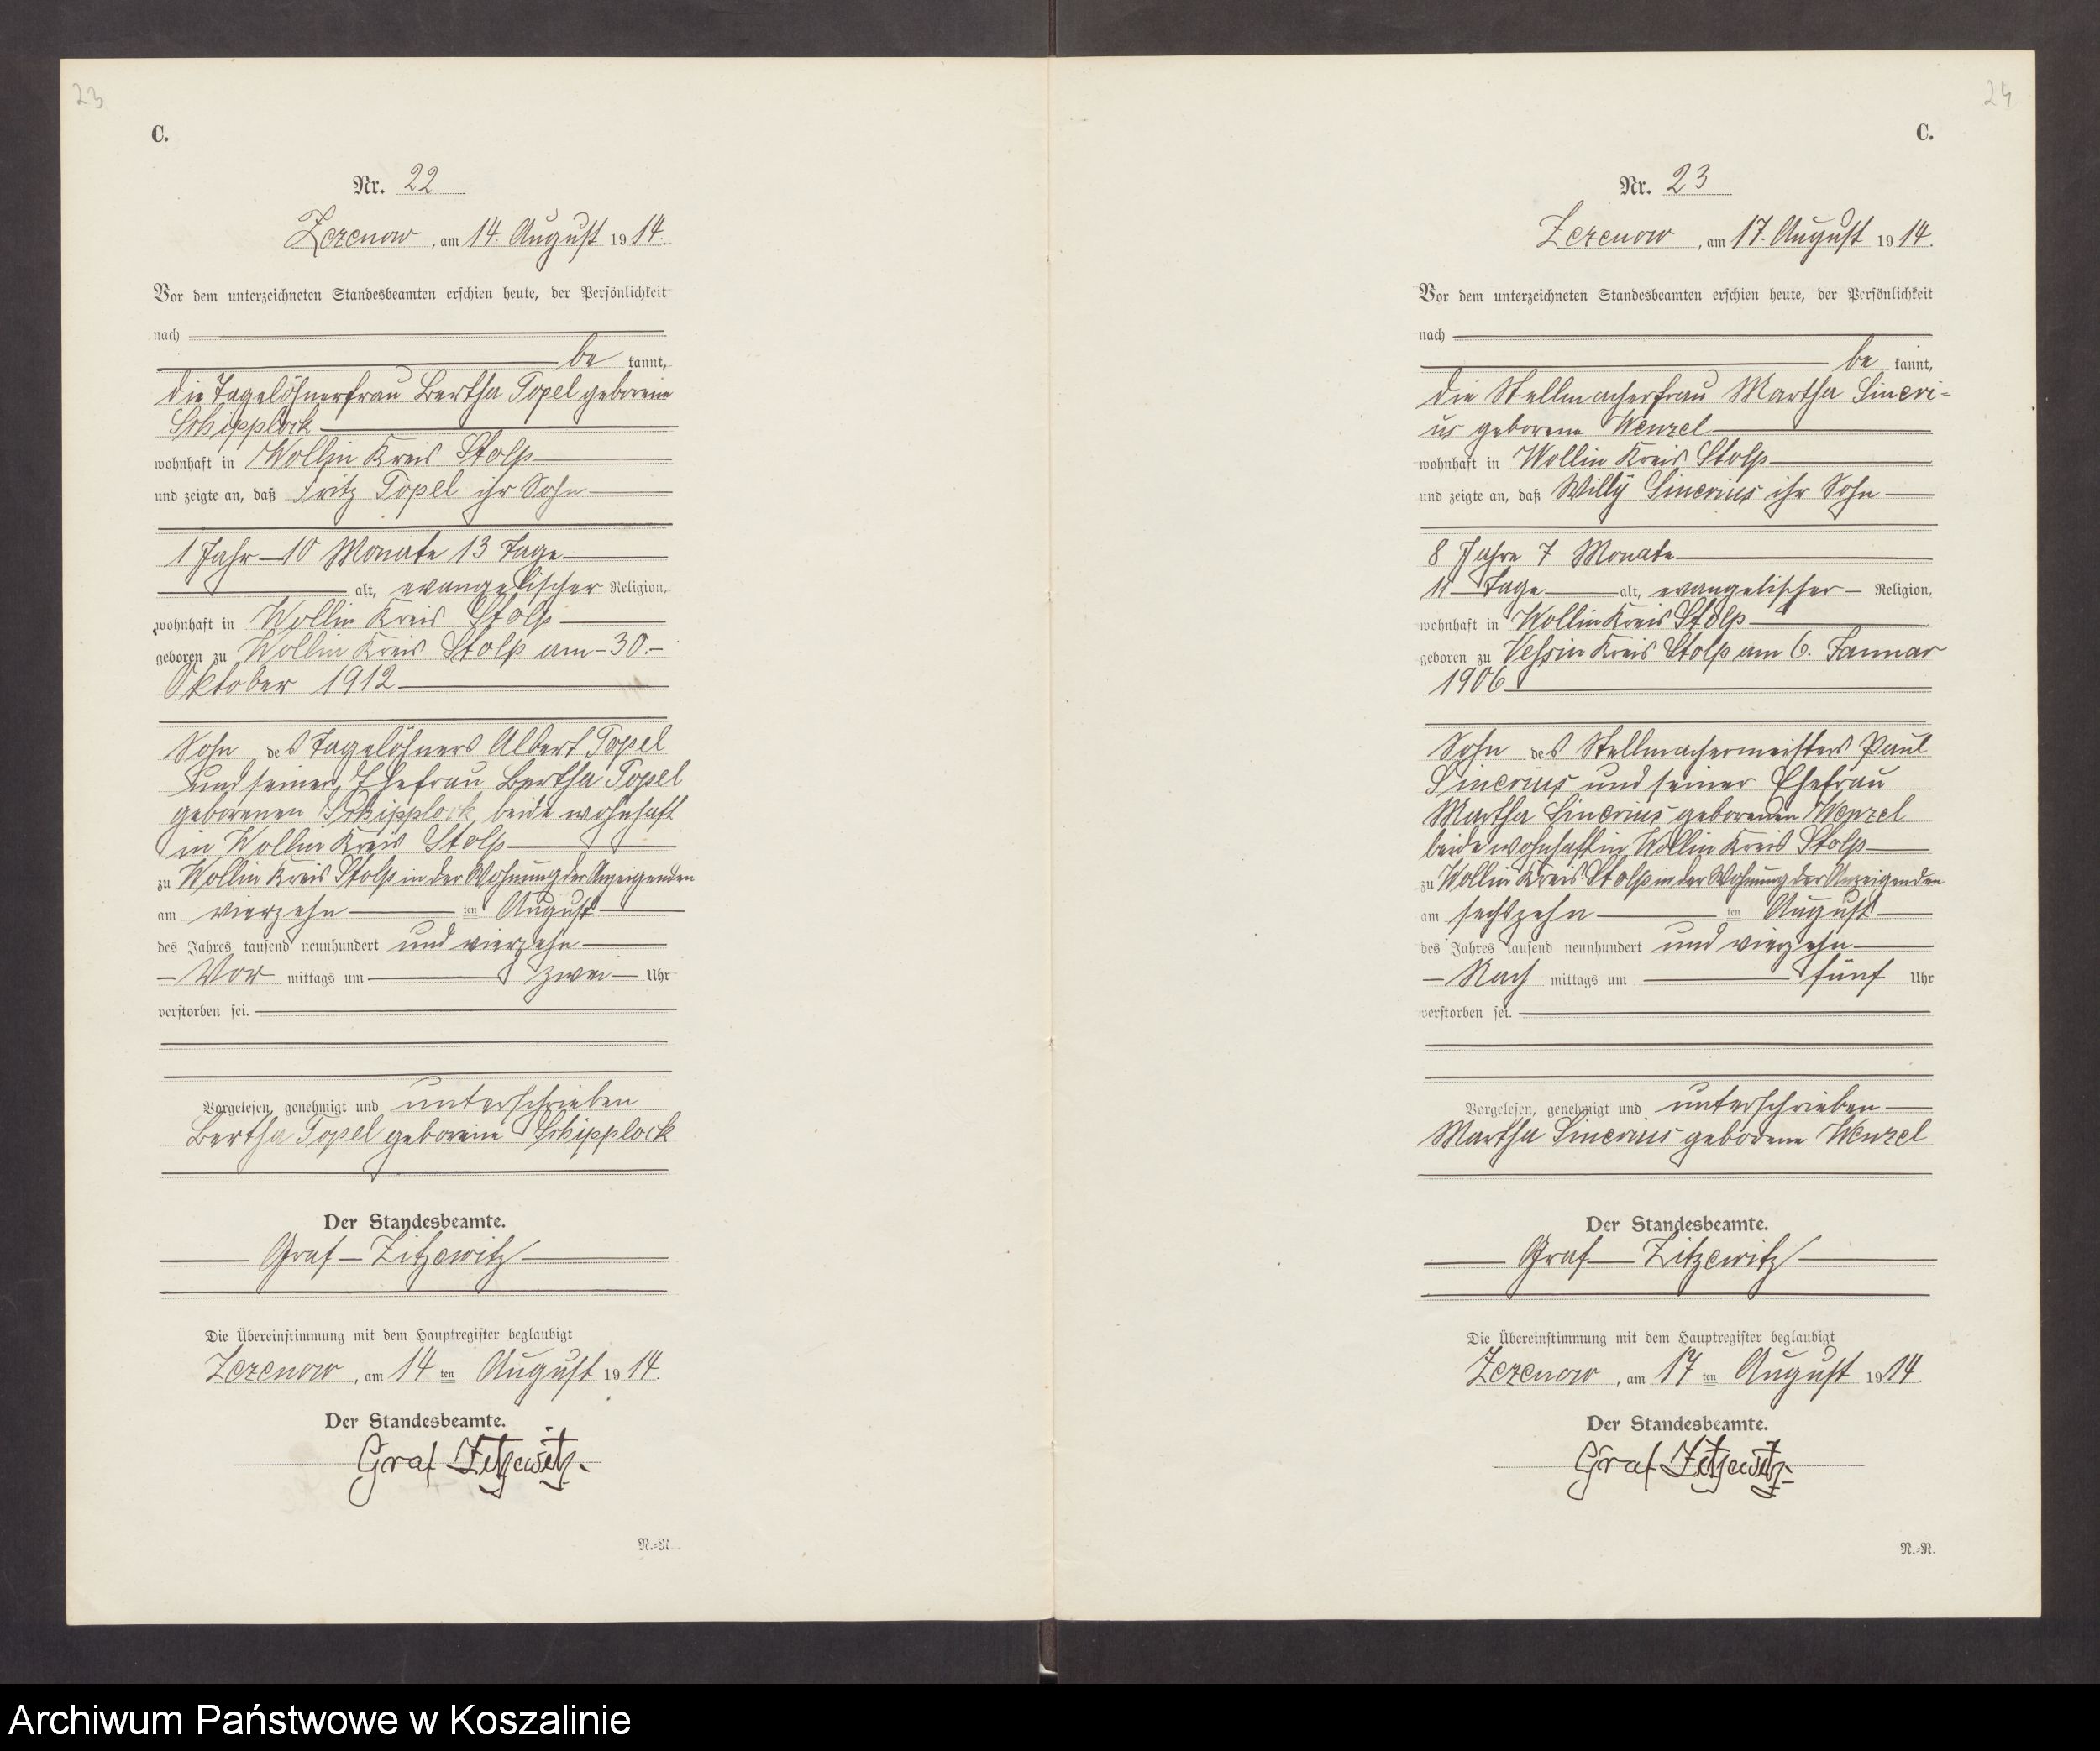 23
C.
Nr. 22
Zezenow, am 14. August 1914.
Vor dem unterzeichneten Standesbeamten erschien heute, der Persönlichkeit
nach
be kannt,
die Tagelöhnerfrau Bertha Topel geborene
Schipplock
wohnhaft in Wollin Kreis Stolp
und zeigte an, daß Fritz Topel ihr Sohn
1 Jahr 10 Monate 13 Tage
alt, evangelischer Religion,
wohnhaft in Wollin Kreis Stolp
geboren zu Wollin Kreis Stolp am 30.
Oktober 1912
Sohn des Tagelöhners Albert Topel
und seiner Ehefrau Bertha Topel
geborenen Schipplock, beide wohnhaft
in Wollin Kreis Stolp
zu Wollin Kreis Stolp in der Wohnung der Anzeigenden
am vierzehn ten August
des Jahres tausend neunhundert und vierzehn
Vor mittags um zwei Uhr
verstorben sei.
Vorgelesen, genehmigt und unterschrieben
Bertha Topel geborene Schipplock
Der Standesbeamte.
Graf Zitzewitz
Die Übereinstimmung mit dem Hauptregister beglaubigt
Zezenow, am 14 ten August 1914.
Der Standesbeamte.
Graf Zitzewitz.
N.=N.
24
C.
Nr. 23
Zezenow, am 17. August 1914.
Vor dem unterzeichneten Standesbeamten erschien heute, der Persönlichkeit
nach
be kannt,
die Stellmacherfrau Martha Sineri-
us geborene Wenzel
wohnhaft in Wollin Kreis Stolp
und zeigte an, daß Willy Sinerius ihr Sohn
8 Jahre 7 Monate
11 Tage alt, evangelischer Religion,
wohnhaft in Wollin Kreis Stolp
geboren zu Vessin Kreis Stolp am 6. Januar
1906
Sohn des Stellmachermeisters Paul
Sinerius und seiner Ehefrau
Martha Sinerius geborenen Wenzel
beide wohnhaft in Wollin Kreis Stolp
zu Wollin Kreis Stolp in der Wohnung der Anzeigenden
am sechszehn ten August
des Jahres tausend neunhundert und vierzehn
Nach mittags um fünf Uhr
verstorben sei.
Vorgelesen, genehmigt und unterschrieben
Martha Sinerius geborene Wenzel
Der Standesbeamte.
Graf Zitzewitz
Die Übereinstimmung mit dem Hauptregister beglaubigt
Zezenow, am 17 ten August 1914.
Der Standesbeamte.
Graf Zitzewitz.
N.=N.
Archiwum Państwowe w Koszalinie